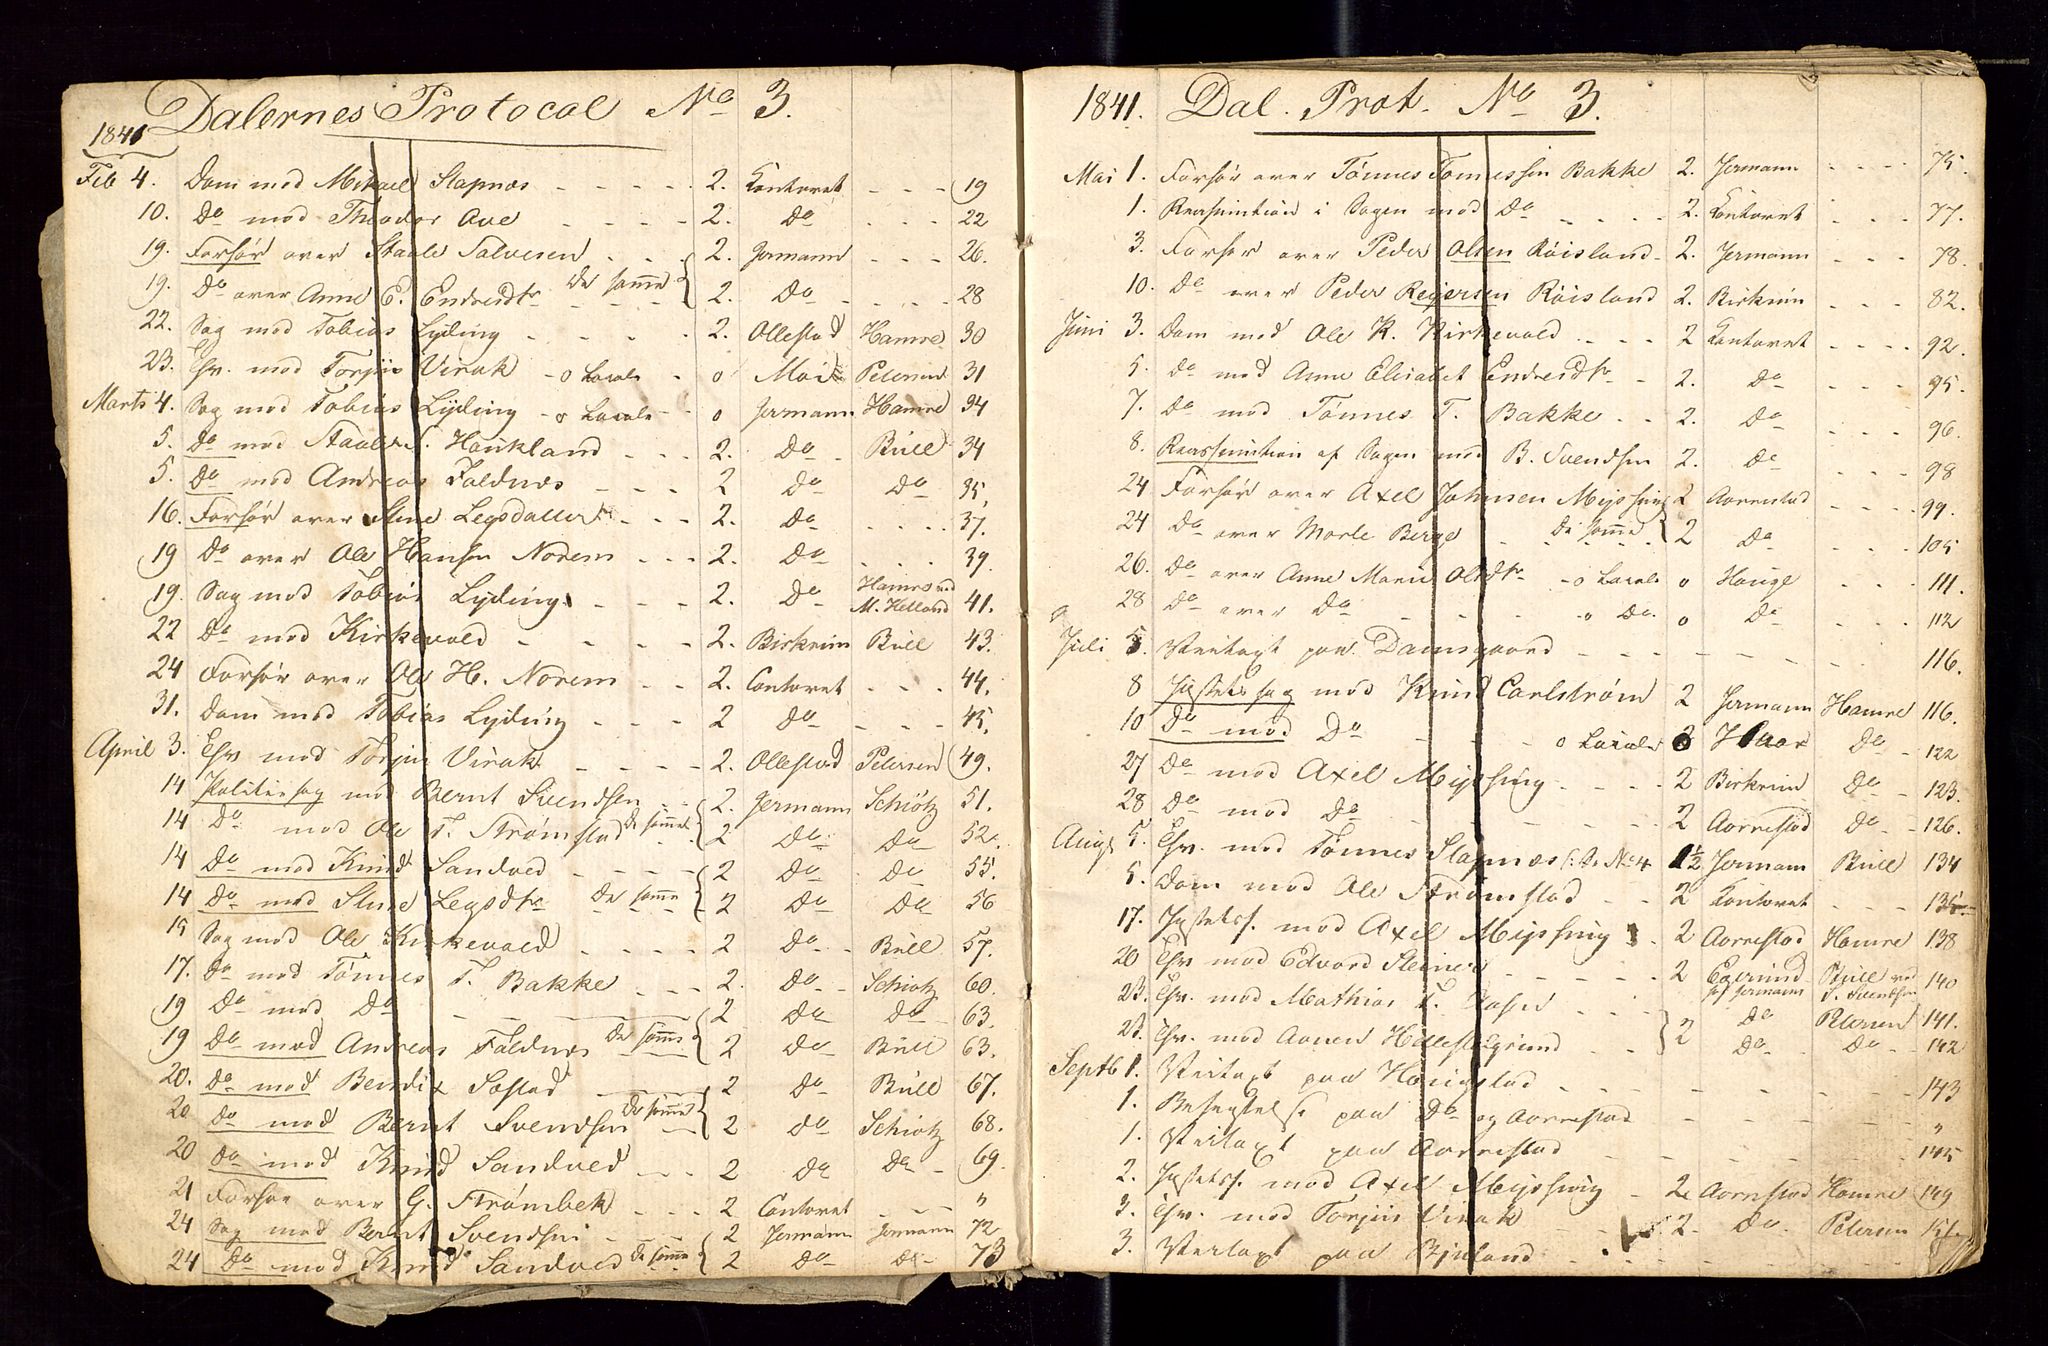 Dalernes Protocol No 3.
1841
Feb 4. Dom mod Mikael Slapnæs - - - - - 2. Contoret - - - 19
10. Do mod Theodor Ave - - - - 2. Do - - - 22
19. Forhør over Staale Salvesen - - - 2. Jermann - - - 26.
19. Do over Anne E. Endresdtr De samme 2. Do - - - - 28
22. Sag mod Tobias Lyding - - - - 2. Ollestad Hamre 30
23. Exv. mod Torjus Virak - o Locale - o Petersen 31
Marts 4. Sag mod Tobias Lyding - o Locale - o Jermann Hamre 34
5. Do mod Staale S. Haukland - - - 2. Do - Bull 34
5. Do mod Andreas Foldnæs - - - 2 Do Do 35.
16. Forhør over Stine Legsdatter - - - 2. Do - - - - 37.
19 Do over Ole Hansen Norem - - - 2. Do - - - - 39.
19. Sag mod Tobias Lyding - - - 2. Do - Hamre ved M. Helland 41.
22 Do mod Kirkevold - - - - 2. Birkrim Bull 43.
24 Forhør over Ole H. Norem - - 2. Contoret - - - 44.
31. Dom mod Tobias Lyding - - - 2 Do - - - - 45.
April 3. Exv mod Torjus Virak - - - - 2. Ollestad Petersen 49.
14 Politiesag mod Bernt Svendsen - - 2. Jermann Schiøtz 51.
14 Do mod Ole T. Strømstad De samme 2 Do Do 52.
14 Do mod Knud Sandved - - - - 2 Do Do 55.
14 Do mod Stine Legsdtr De samme 2 Do Do 56
15 Sag mod Ole Kirkevold - - - - 2 Do - Bull 57.
17. Do mod Tønnes T. Bakke - - - 2. Do - Schiøtz 60.
19 Do mod Do - - - - 2 Do Do 63.
19 Do mod Andreas Foldnæs De samme 2 Do Bull 63.
20. Do mod Bendix Søstad - - - 2 Do Bull 67.
20 Do mod Bernt Svendsen De samme 2 Do Schiøtz 68.
20 Do mod Knud Sandved - - - 2 Do Do - 69.
21 Forhør over G. Strømbek - - - 2 Contoret - - - "
24 Sag mod Bernt Svendsen - - - - 2 Jermann Jermann 72
24 Do mod Knud Sandved De samme 2 Do Do - 73
1841. Dal. Prot. No 3.
Mai 1. Forhør over Tønnes Tønnessen Bakke 2. Jermann - - - - 75.
1. Reassumtion i Sagen mod Do - - - - 2. Contoret - - - 77.
3. Forhør over Peder Olsen Röisland - 2. Jermann - - - 78.
10. Do over Peder Regersen Röisland 2. Birkrim - - - 82.
Juni 3. Dom mod Ole K. Kirkevold - - - - 2 Contoret - - - - 92.
5. Do mod Anne Elisabet Endresdtr - - 2. Do - - - - 95.
7. Do mod Tønnes T. Bakke - - 2. Do - - - - 96.
8. Reassumtion af Sagen mod B. Svendsen 2. Do - - - - 98
24 Forhør over Axel Johnsen Myssing 2 Aarrestad - - - - 99.
24 Do over Marte Berge - De samme 2 Do - - - - 105
26. Do over Anne Marie Olsdtr - o Locale o Hauge - - - 111.
28 Do over Do - - - o Do. o Do - - - - 112
Juli 5 Veitaxt paa Damsgaard - - - - - - - - 116.
8 Justitssag mod Knud Carlstrøm 2 Jermann Hamre 116.
10 Do mod Do - - - o Locale Do - 122
27 Do mod Axel Myssing - - - - 2 Birkrim Do - 123.
28 Do mod Do - - - - - - 2 Aarrestad Do - 126.
Augs 5. Exv. mod Tønnes Slapnæs No 4 1½ Jermann Bull 134
5. Dom mod Ole Strømstad - - 2 Contoret - - - 135
17. Justitss. mod Axel Myssing - 2 Aarrestad Hamre 138
20 Exv mod Edvard Steiner - - - - - 2 Egersund hos Jermann Bull ved S. Svendsen 140
23. Exv. mod Mathias T. - - - 2 Do Petersen 141.
23. Exv. mod Aanen Hellestøgrund - - Do - Do - 142
Septb 1. Veitaxt paa Haugstad - - - - - - - 143
1. Besigtelse paa Do og Aarrestad - - - - - "
1. Veitaxt paa Aarrestad - - - - - - - - 145
2. Justitss. mod Axel Myssing - 2 Aarrestad Hamre 149
3. Exv. mod Torjus Virak - - 2. Do. Petersen 151.
3. Veitaxt paa Bjuland - - - - - - - -